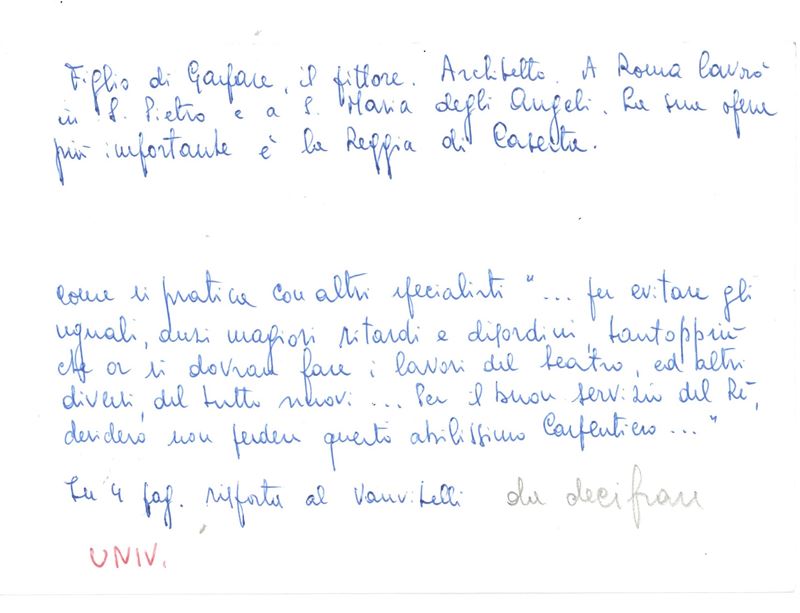 Figlio di Gaspare, il pittore. Architetto. A Roma lavorò
in S. Pietro e a S. Maria degli Angeli. La sua opera
più importante è la Reggia di Caserta.
come si pratica con altri specialisti "... per evitare gli
uguali, anzi magiori ritardi e disordini, tantoppiù
che or si dovran fare i lavori del teatro, ed altri
diversi, del tutto nuovi ... Per il buon servizio del Rè,
desidero non perdere questo abilissimo Carpentiero ..."
In 4 pag. risposta al Vanvitelli da decifrare
UNIV.